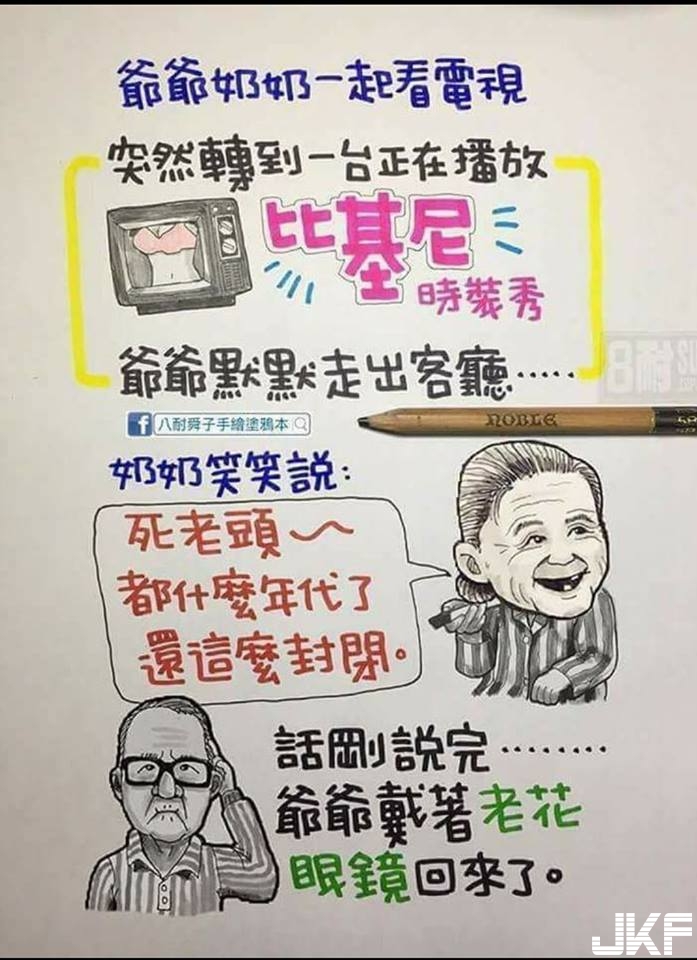 爺爺奶奶一起看電視
突然轉到一台正在播放
比基尼
時裝秀
爺爺默默走出客廳‥‥‥
八耐舜子手繪塗鴉本
NOBLE
奶奶笑笑說：
死老頭～
都什麼年代了
還這麼封閉。
話剛說完‥‥‥‥
爺爺戴著老花
眼鏡回來了。
JKF